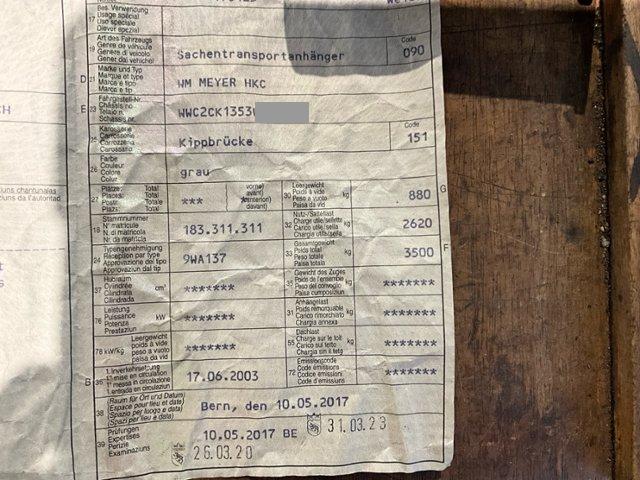 Bes. Verwendung
Usage spécial
17 Uso speciale
Diever spezial
Art des Fahrzeugs
Genre de véhicule
19 Genere di veicolo
Gener dal vehichel
Sachentransportanhänger
Code
090
Marke und Typ
D 21 Marque et type
Marca e tipo
Marca e tip
WM MEYER HKC
Fahrgestell-Nr.
E 23 Châssis no
Telaio n.
Schassis nr.
WWC2CK1353
Karosserie
25 Carrosserie
Carrozzeria
Carossaria
Kippbrücke
Code
151
Farbe
26 Couleur
Colore
Colur
grau
Plätze: Total
27 Places: Total
Posti: Totale
Plazs: Total
***
vorne)
avant)
davant)
30 Leergewicht
Poids à vide
Peso a vuoto
Paisa da vid
kg
880
G
Stammnummer
18 N° matricule
N. di matricola
Nr. da matricla
183.311.311
32 Nutz-/Sattellast
Charge utile/sellette
Carico utile/sella
Chargia utila/sella
kg
2620
Typengenehmigung
24 Réception par type
Approvazione del tipo
Approvaziun dal tip
9WA137
33 Gesamtgewicht
Poids total
Peso totale
Paisa totala
kg
3500
F
Hubraum
37 Cylindrée
Cilindrata
Cilindrada
cm³
*******
35 Gewicht des Zuges
Poids de l'ensemble
Peso del convoglio
Paisa cumposiziun
kg
*******
Leistung
76 Puissance
Potenza
Prestaziun
kW
*******
31 Anhängelast
Poids remorquable
Carico rimorchiato
Chargia annexa
kg
*******
78 kW/kg
Leergewicht
poids à vide
peso a vuoto
paisa da vid
*******
55 Dachlast
Charge sur le toit
Carico sul tetto
Chargia sin il tetg
kg
*******
B 36 1. Inverkehrsetzung
1re mise en circulation
1. messa in circolazione
1. entrada en circulaziun
17.06.2003
72 Emissionscode
Code émissions
Codice emissioni
Code d'emissiuns
*******
38 (Raum für Ort und Datum)
(Espace pour lieu et date)
(Spazio per luogo e data)
(Spazi per lieu e data)
Bern, den 10.05.2017
39 Prüfungen
Expertises
Perizie
Examinaziuns
10.05.2017 BE
31.03.23
26.03.20